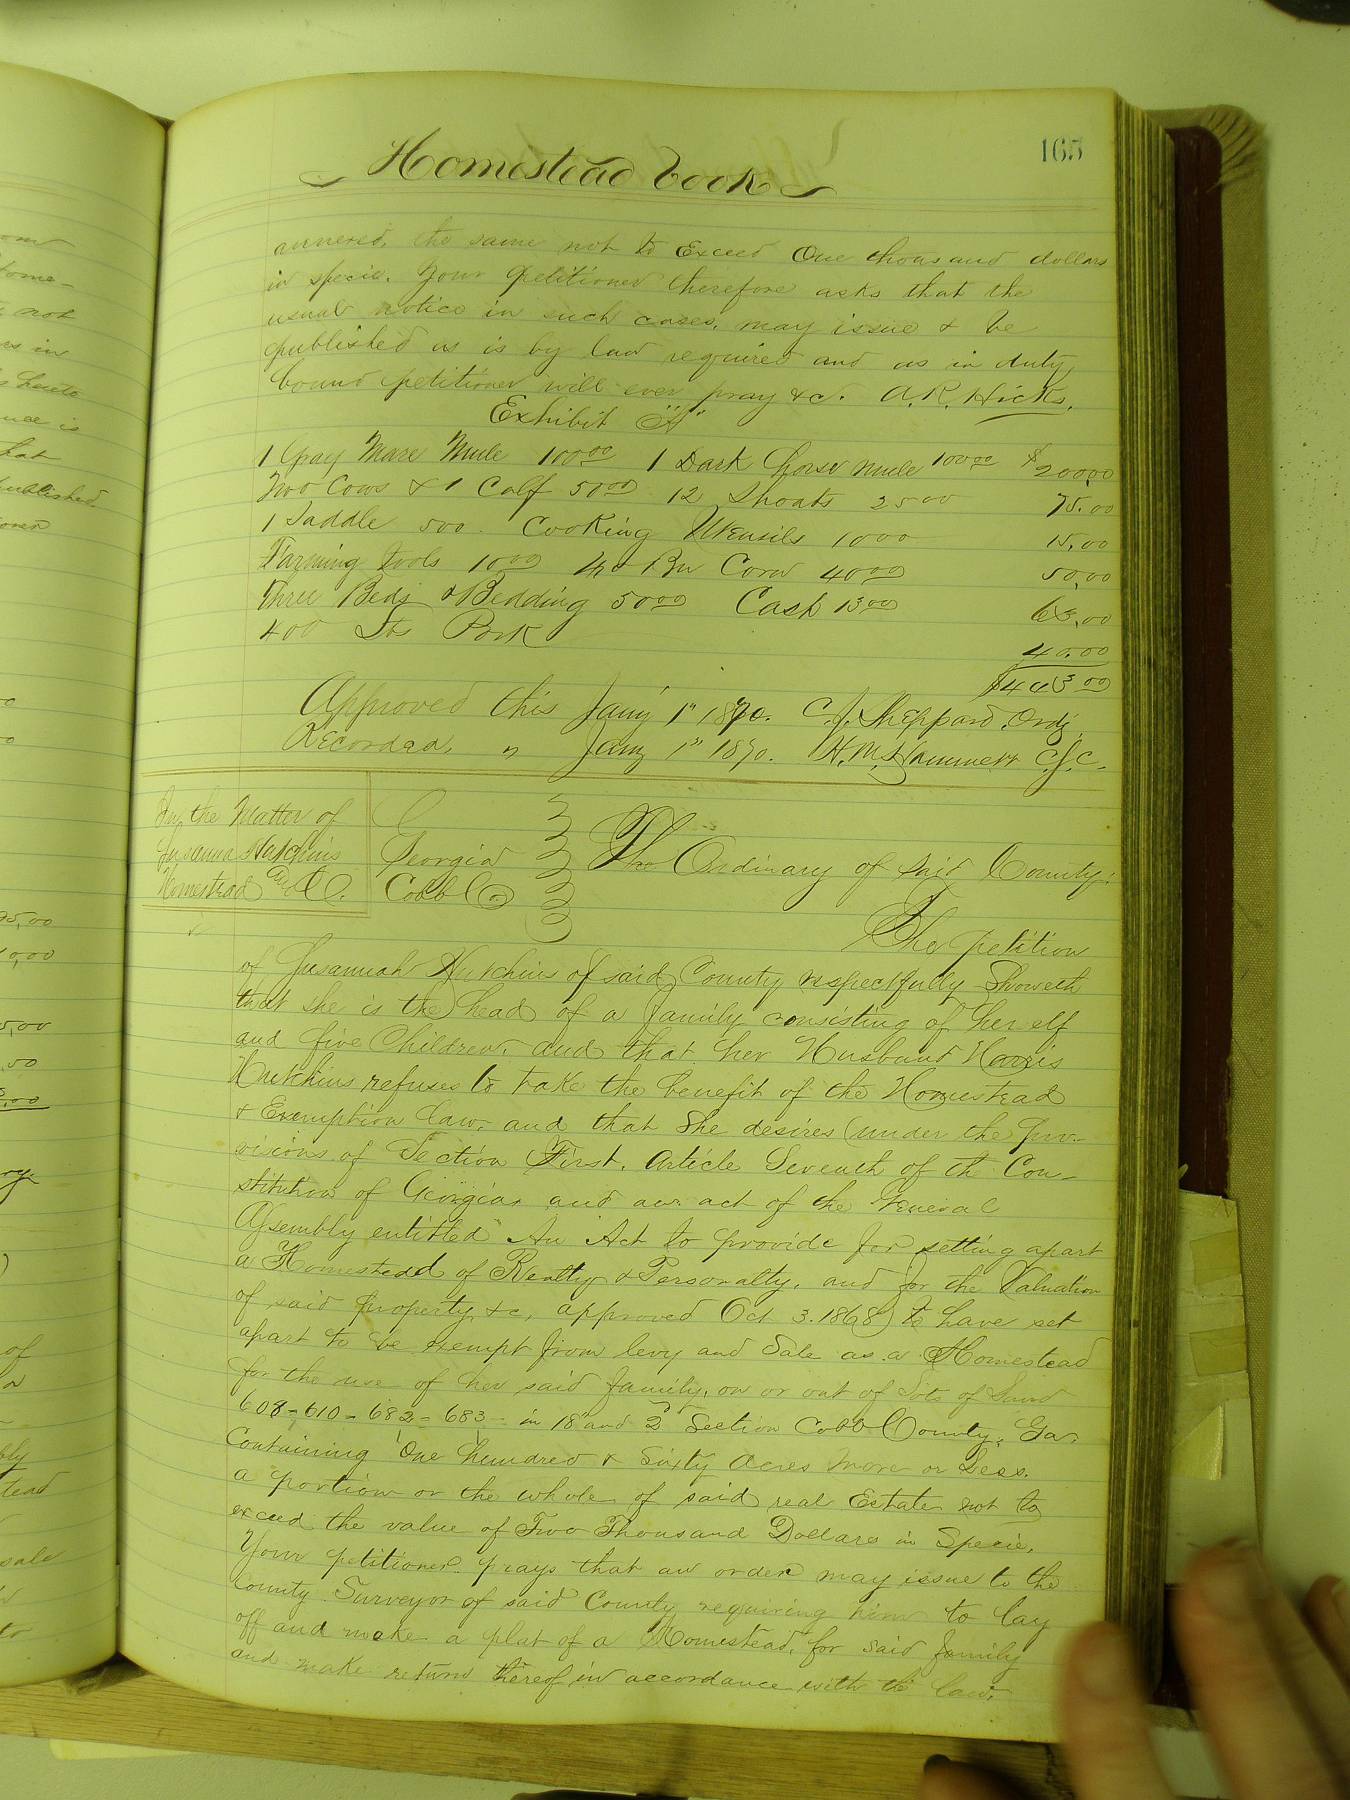 Homestead book
165
annexed, the same not to Exceed One thousand dollars
in specie. Your petitioner therefore asks that the
usual notice in such cases, may issue & be
published as is by law required and as in duty
bound petitioner will ever pray &c. A. R. Hicks.
Exhibit "A"
1 Gray Mare Mule 100 00 1 Dark horse mule 100 00 $200,00
Two Cows & 1 Calf 50 00 12 Shoats 25 00 75.00
1 Saddle 5 00. Cooking Utensils 10 00 15,00
Farming Tools 10 00 40 Bu Corn 40 00 50,00
Three Beds & Bedding 50 00 Cash 13 00 63,00
400 lbs Pork
40.00
$443 00
Approved this Jany 1st 1870. C. J. Sheppard. Ordy.
Recorded, " Jany 1st 1870. H. M. Hammett C.S.C.
In the Matter of
Susanna Hutchins
Homestead
Georgia
Cobb Co
The Ordinary of said County:
The petition
of Susannah Hutchins of said County respectfully Showeth
that she is the head of a family consisting of herself
and five Children, and that her Husband Harris
Hutchins refuses to take the benefit of the Homestead
& Exemption law, and that She desires (under the Pro-
visions of Section First, Article Seventh of the Con-
stitution of Georgia, and an act of the General
Assembly entitled An Act to provide for setting apart
a Homestead of Realty & Personalty, and for the Valuation
of said property, &c, approved Oct 3. 1868) to have set
apart to be exempt from levy and Sale as a Homestead
for the use of her said family, on or out of Lots of Land
608 - 610 - 682 - 683 - in 18" and 2d Section Cobb County, Ga.
Containing One hundred & Sixty Acres More or Less.
a portion or the whole of said real Estate not to
exceed the value of Two Thousand Dollars in Specie.
Your petitioner prays that an order may issue to the
County Surveyor of said County requiring him to lay
off and make a plat of a Homestead, for said family
and make return thereof in accordance with the law,